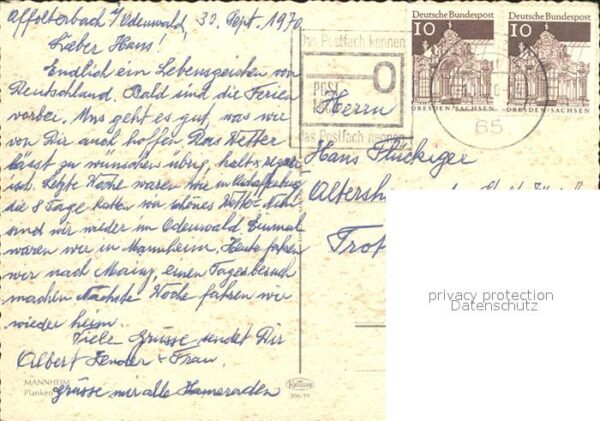 Affolterbach i/Odenwald, 30. Sept. 1970
Lieber Hans!
Endlich ein Lebenszeichen von
Deutschland. Bald sind die Ferien
vorbei. Uns geht es gut, was wir
von Dir auch hoffen. Das Wetter
lässt zu wünschen übrig, kalt & regner
isch. Letzte Woche waren wir in Aschaffenburg
die 8 Tage hatten wir schönes Wetter.
sind wir wieder im Odenwald. Einmal
waren wir in Mannheim. Heute fahren
wir nach Mainz, einen Tagesbesuch
machen. Nächste Woche fahren wir
wieder heim.
Viele Grüsse sendet Dir
Albert Zender + Frau
Grüsse mir alle Kameraden
MANNHEIM
Planken
KRÜGER
Das Postfach kennen
POST
das Postfach nennen
Deutsche Bundespost
10
DRESDEN/SACHSEN
Deutsche Bundespost
10
DRESDEN/SACHSEN
65
Herrn
Hans Flückiger
privacy protection
Datenschutz